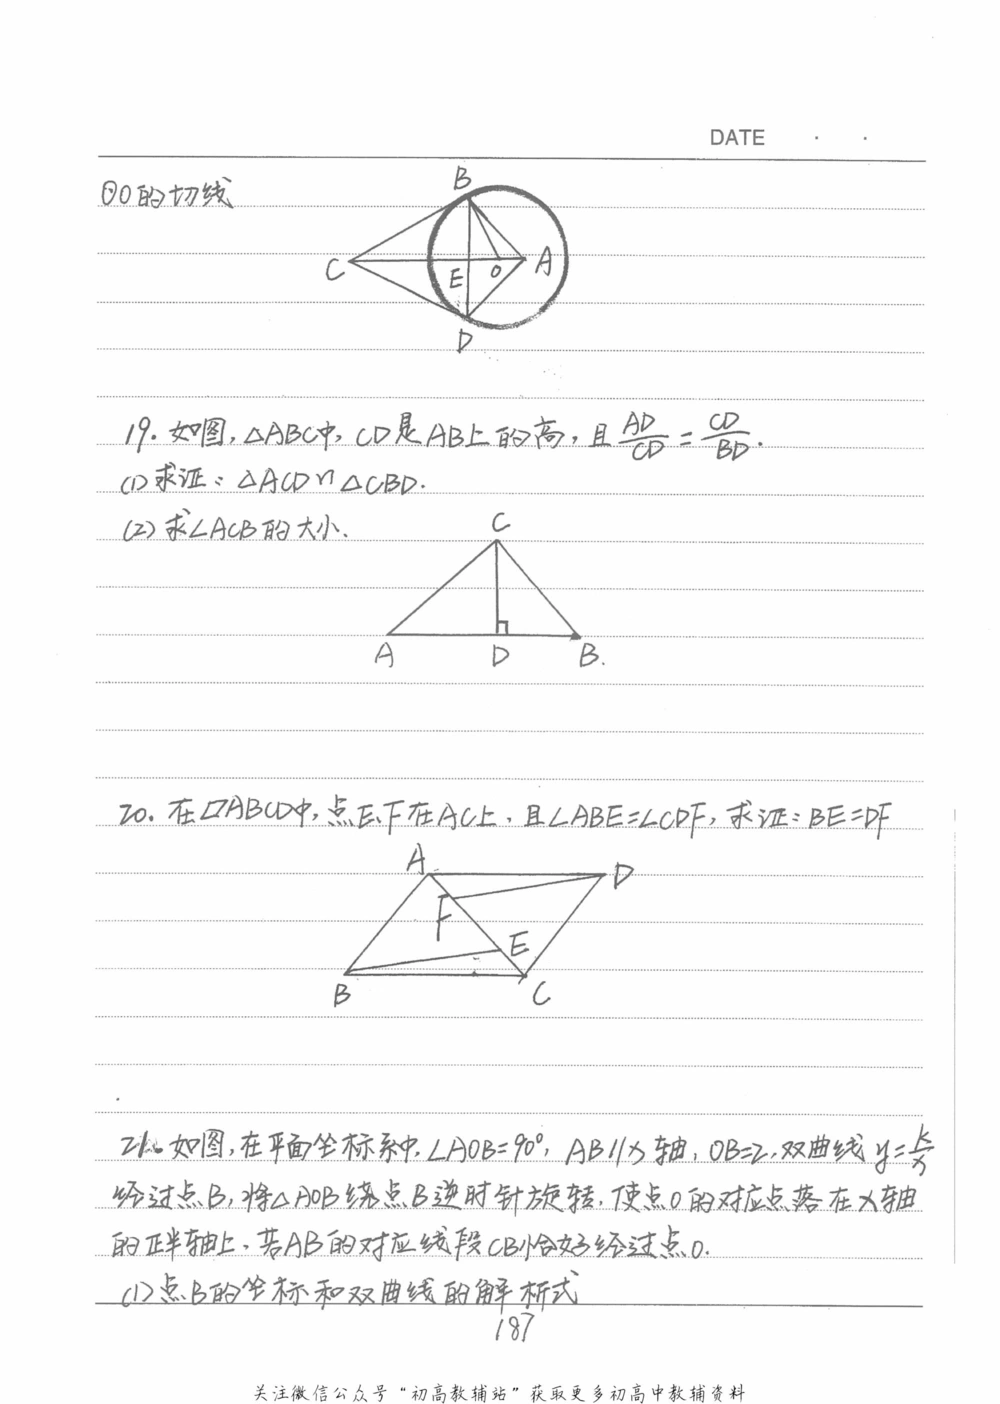 DATE
⊙O的切线
B
C
E
O
A
D
19. 如图,△ABC中,CD是AB上的高,且AD/CD=CD/BD.
(1)求证:△ACD∽△CBD.
(2)求∠ACB的大小.
C
A
D
B.
20. 在▱ABCD中,点E、F在AC上,且∠ABE=∠CDF,求证:BE=DF
A
D
F
E
B
C
21. 如图,在平面坐标系中,∠AOB=90°,AB//x轴,OB=2,双曲线y=k/x
经过点B,将△AOB绕点B逆时针旋转,使点O的对应点落在x轴
的正半轴上,若AB的对应线段CB恰好经过点O.
(1)点B的坐标和双曲线的解析式
187
关注微信公众号“初高教辅站”获取更多初高中教辅资料